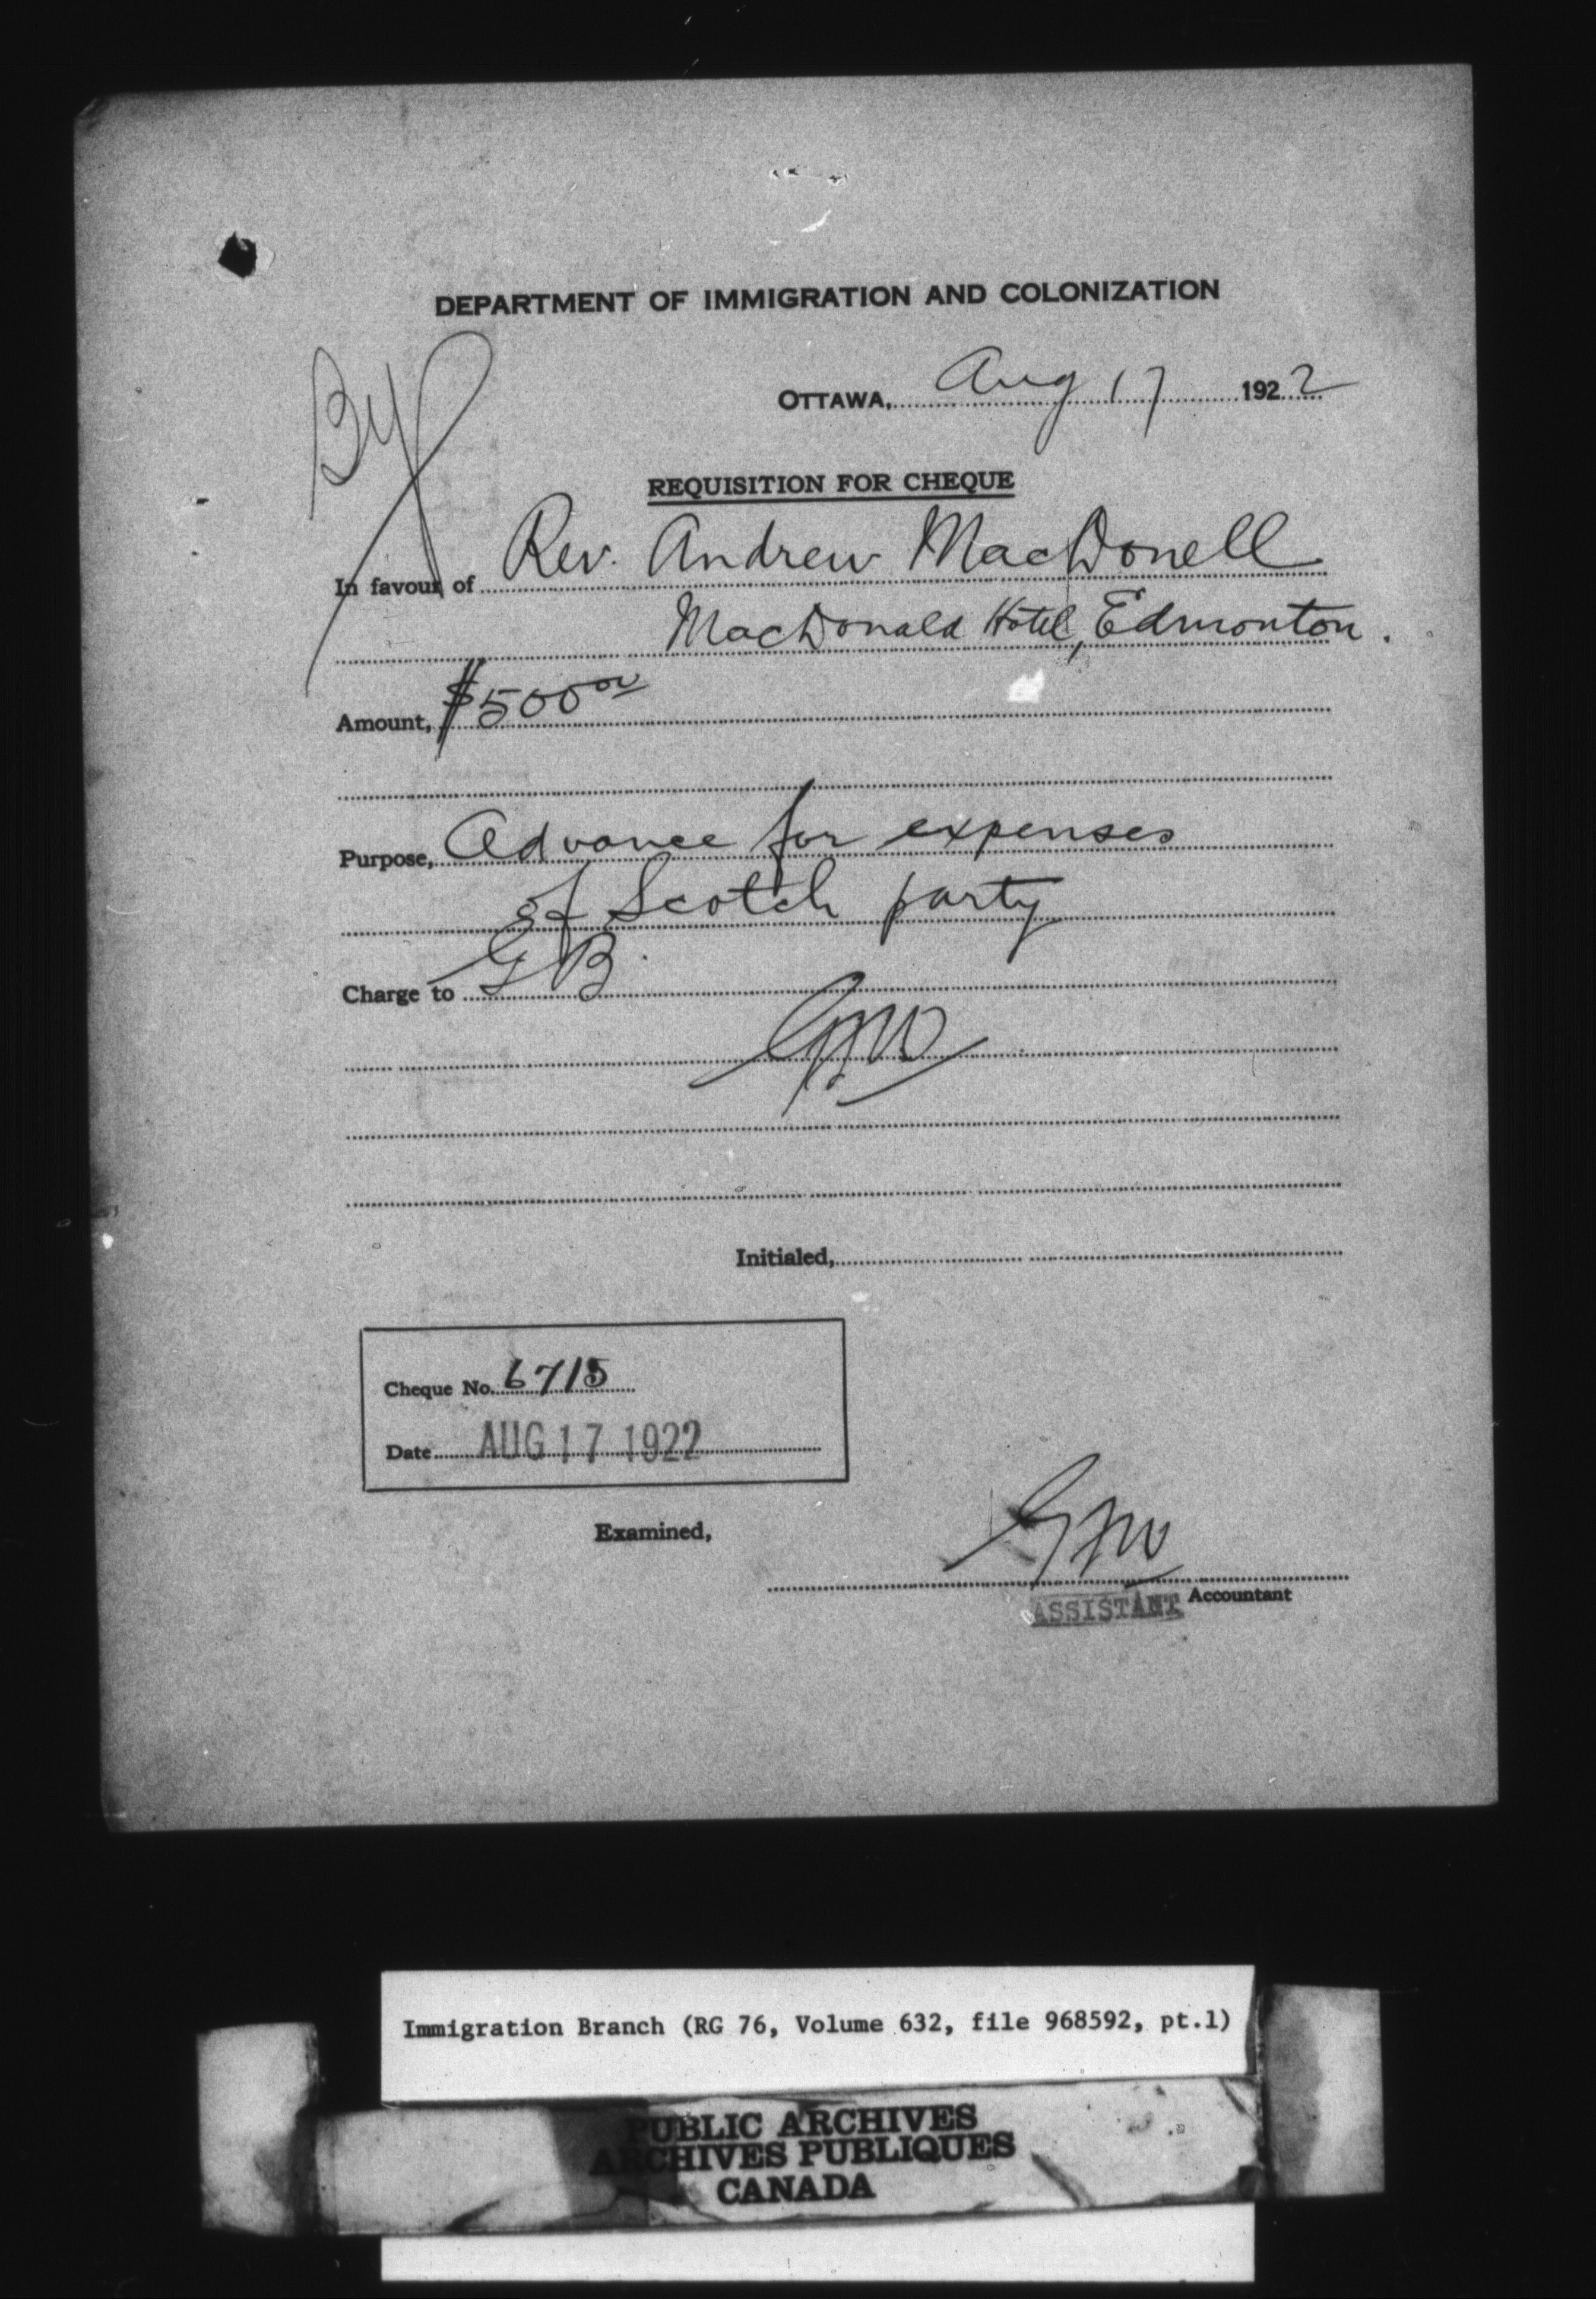 DEPARTMENT OF IMMIGRATION AND COLONIZATION
OTTAWA, Aug 17 1922
REQUISITION FOR CHEQUE
In favour of Rev. Andrew MacDonell
MacDonald Hotel, Edmonton.
Amount, $500 00
Purpose, Advance for expenses
of Scotch party
Charge to G B
Initialed,
Cheque No. 6715
Date AUG 17 1922
Examined,
ASSISTANT Accountant
Immigration Branch (RG 76, Volume 632, file 968592, pt.1)
PUBLIC ARCHIVES
ARCHIVES PUBLIQUES
CANADA